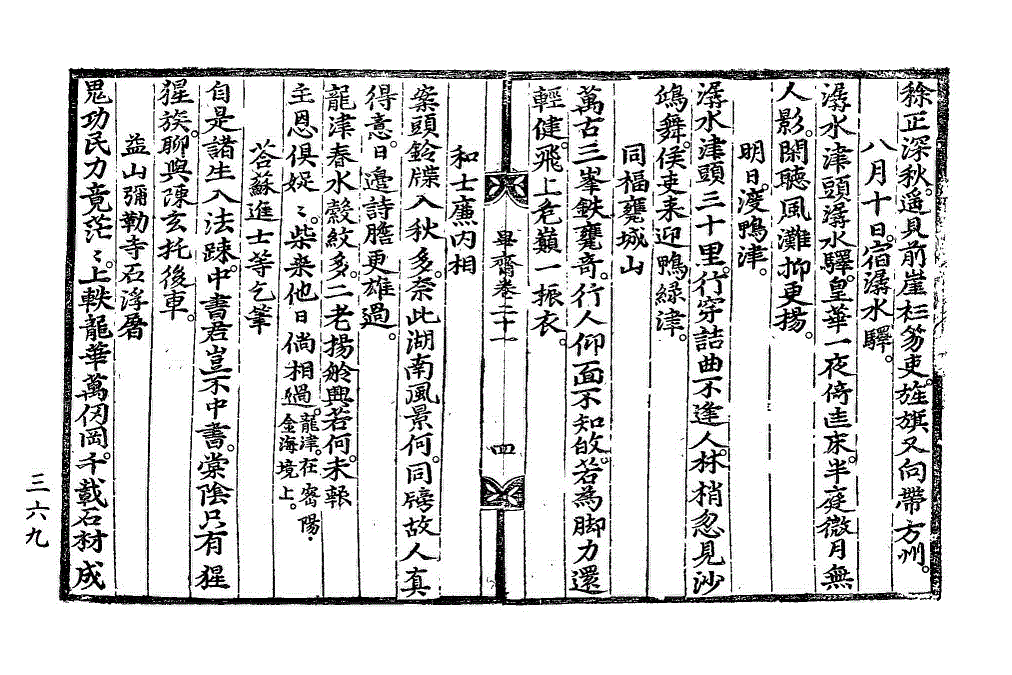 徐正深秋。遙見前崖杉笏吏。旌旗又向帶方州。
八月十日。宿潺水驛。
潺水津頭潺水驛。皇華一夜倚匡床。半庭微月無
人影。閑聽風灘抑更揚。
明日。渡鴨津。
潺水津頭三十里。行穿詰曲不逢人。林梢忽見沙
鳩舞。侯吏来迎鴨綠津。
同福甕城山
萬古三峯鉄甕奇。行人仰面不知攲。若為脚力還
輕健。飛上危巓一振衣。
畢齋卷之二十一
四
和士廉内相
案頭鈴牒入秋多。奈此湖南風景何。同牓故人真
得意。日邊詩膽更雄過。
龍津春水縠紋多。二老揚舲興若何。未報
主恩俱娖〻。柴桑他日倘相過。龍津。在密陽。
金海境上。
荅蘇進士等乞筆
自是諸生入法踈。中書君豈不中書。棠陰只有猩
猩族。聊與陳玄托後車。
益山彌勒寺石浮屠
鬼功民力竟茫〻。上軼龍華萬仞岡。千載石材成
三六九